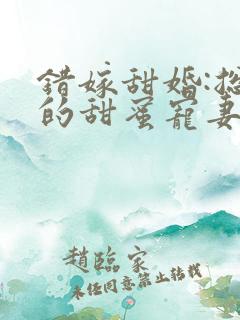 錯嫁甜婚:
的甜蜜寵妻
趙臨家
未經同意禁止轉載